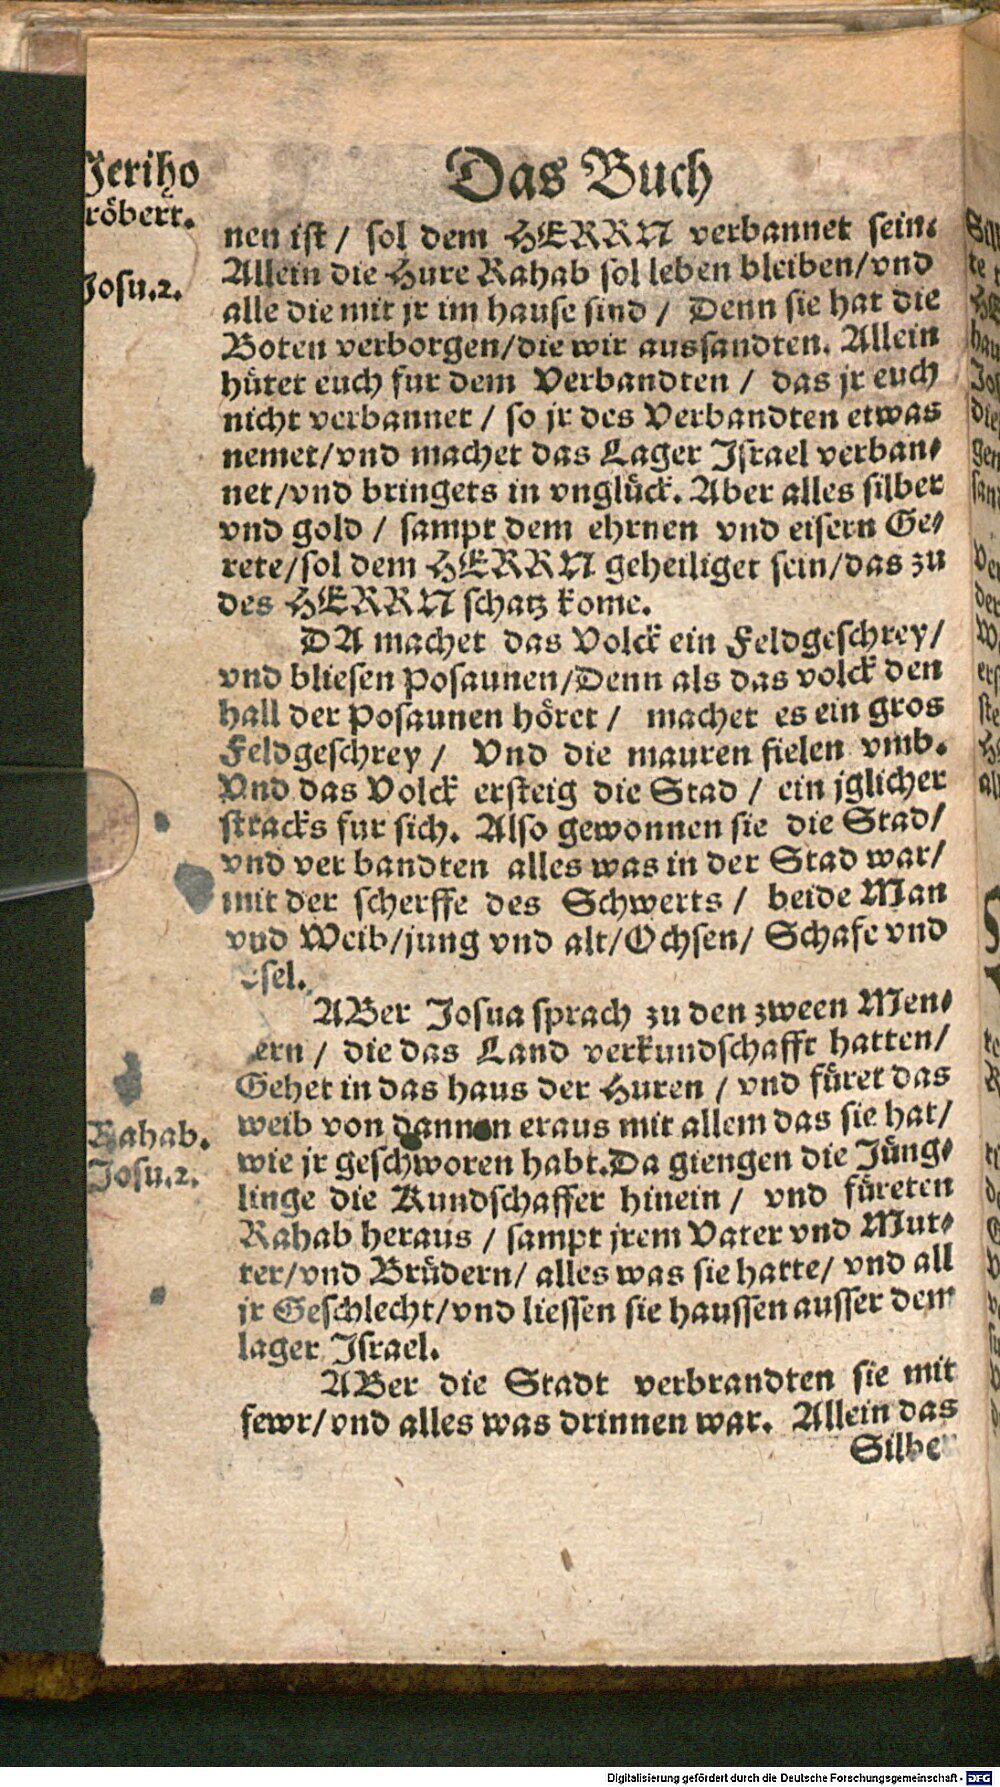 Das Buch
Jeriho
röbert.
Josu.2.
nen ist / sol dem HERRN verbannet sein.
Allein die Hure Rahab sol leben bleiben/vnd
alle die mit jr im hause sind / Denn sie hat die
Boten verborgen/die wir aussandten. Allein
hütet euch fur dem Verbandten / das jr euch
nicht verbannet / so jr des Verbandten etwas
nemet/vnd machet das Lager Jsrael verban⸗
net/vnd bringets in vnglück. Aber alles silber
vnd gold / sampt dem ehrnen vnd eisern Ge⸗
rete/sol dem HERRN geheiliget sein/das zu
des HERRN schatz kome.
DA machet das Volck ein Feldgeschrey/
vnd bliesen Posaunen/Denn als das volck den
hall der Posaunen höret / machet es ein gros
Feldgeschrey / Vnd die mauren fielen vmb.
Vnd das Volck ersteig die Stad / ein jglicher
stracks fur sich. Also gewonnen sie die Stad/
vnd ver bandten alles was in der Stad war/
mit der scherffe des Schwerts / beide Man
vnd Weib/jung vnd alt/Ochsen/ Schafe vnd
sel.
ABer Josua sprach zu den zween Men⸗
ern / die das Land verkundschafft hatten/
Gehet in das haus der Huren / vnd füret das
weib von dannen eraus mit allem das sie hat/
wie jr geschworen habt.Da giengen die Jüng⸗
linge die Kundschaffer hinein / vnd füreten
Rahab heraus / sampt jrem Vater vnd Mut⸗
ter/vnd Brüdern/ alles was sie hatte/ vnd all
jr Geschlecht/vnd liessen sie haussen ausser dem
lager Jsrael.
Rahab.
Josu.2.
ABer die Stadt verbrandten sie mit
fewr/vnd alles was drinnen war. Allein das
Silber
Digitalisierung gefördert durch die Deutsche Forschungsgemeinschaft - DFG